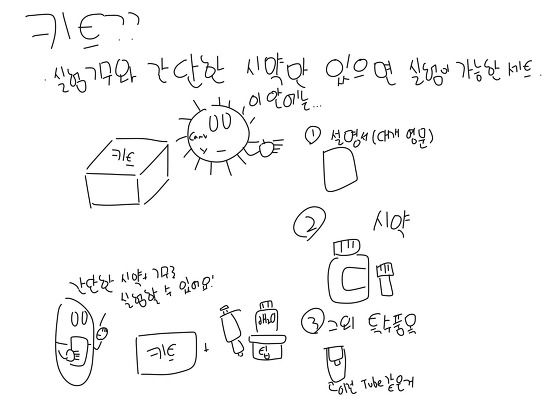 키트??
· 실험기구와 간단한 시약만 있으면 실험이 가능한 세트.
이 안에는...
키트
① 설명서(대개 영문)
② 시약
간단한 시약+기구로
실험할 수 있어요!
키트 +
dH₂O
팁
③ 그외 특수품목
이런 Tube같은거